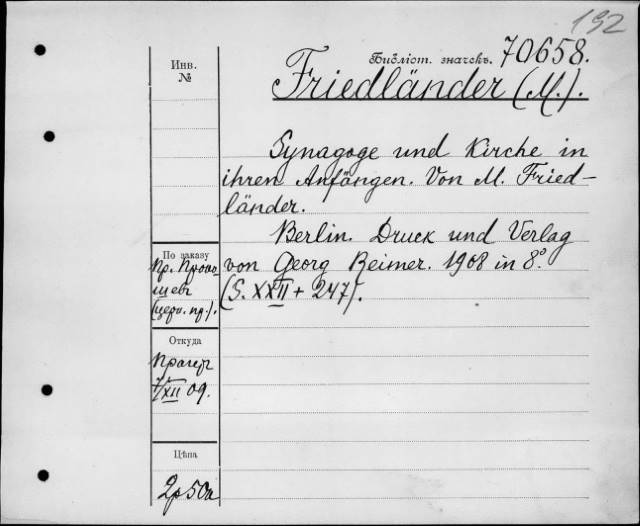 192
Библіот. значекъ. 70658.
Инв.
№
Friedländer (M.).
Synagoge und Kirche in
ihren Anfängen. Von M. Fried-
länder.
Berlin. Druck und Verlag
von Georg Reimer. 1908 in 8°.
(S. XXII + 247).
По заказу
пр.
(церк. пр.).
Откуда
Прагеръ
7/XII 09.
Цѣна
2р 50